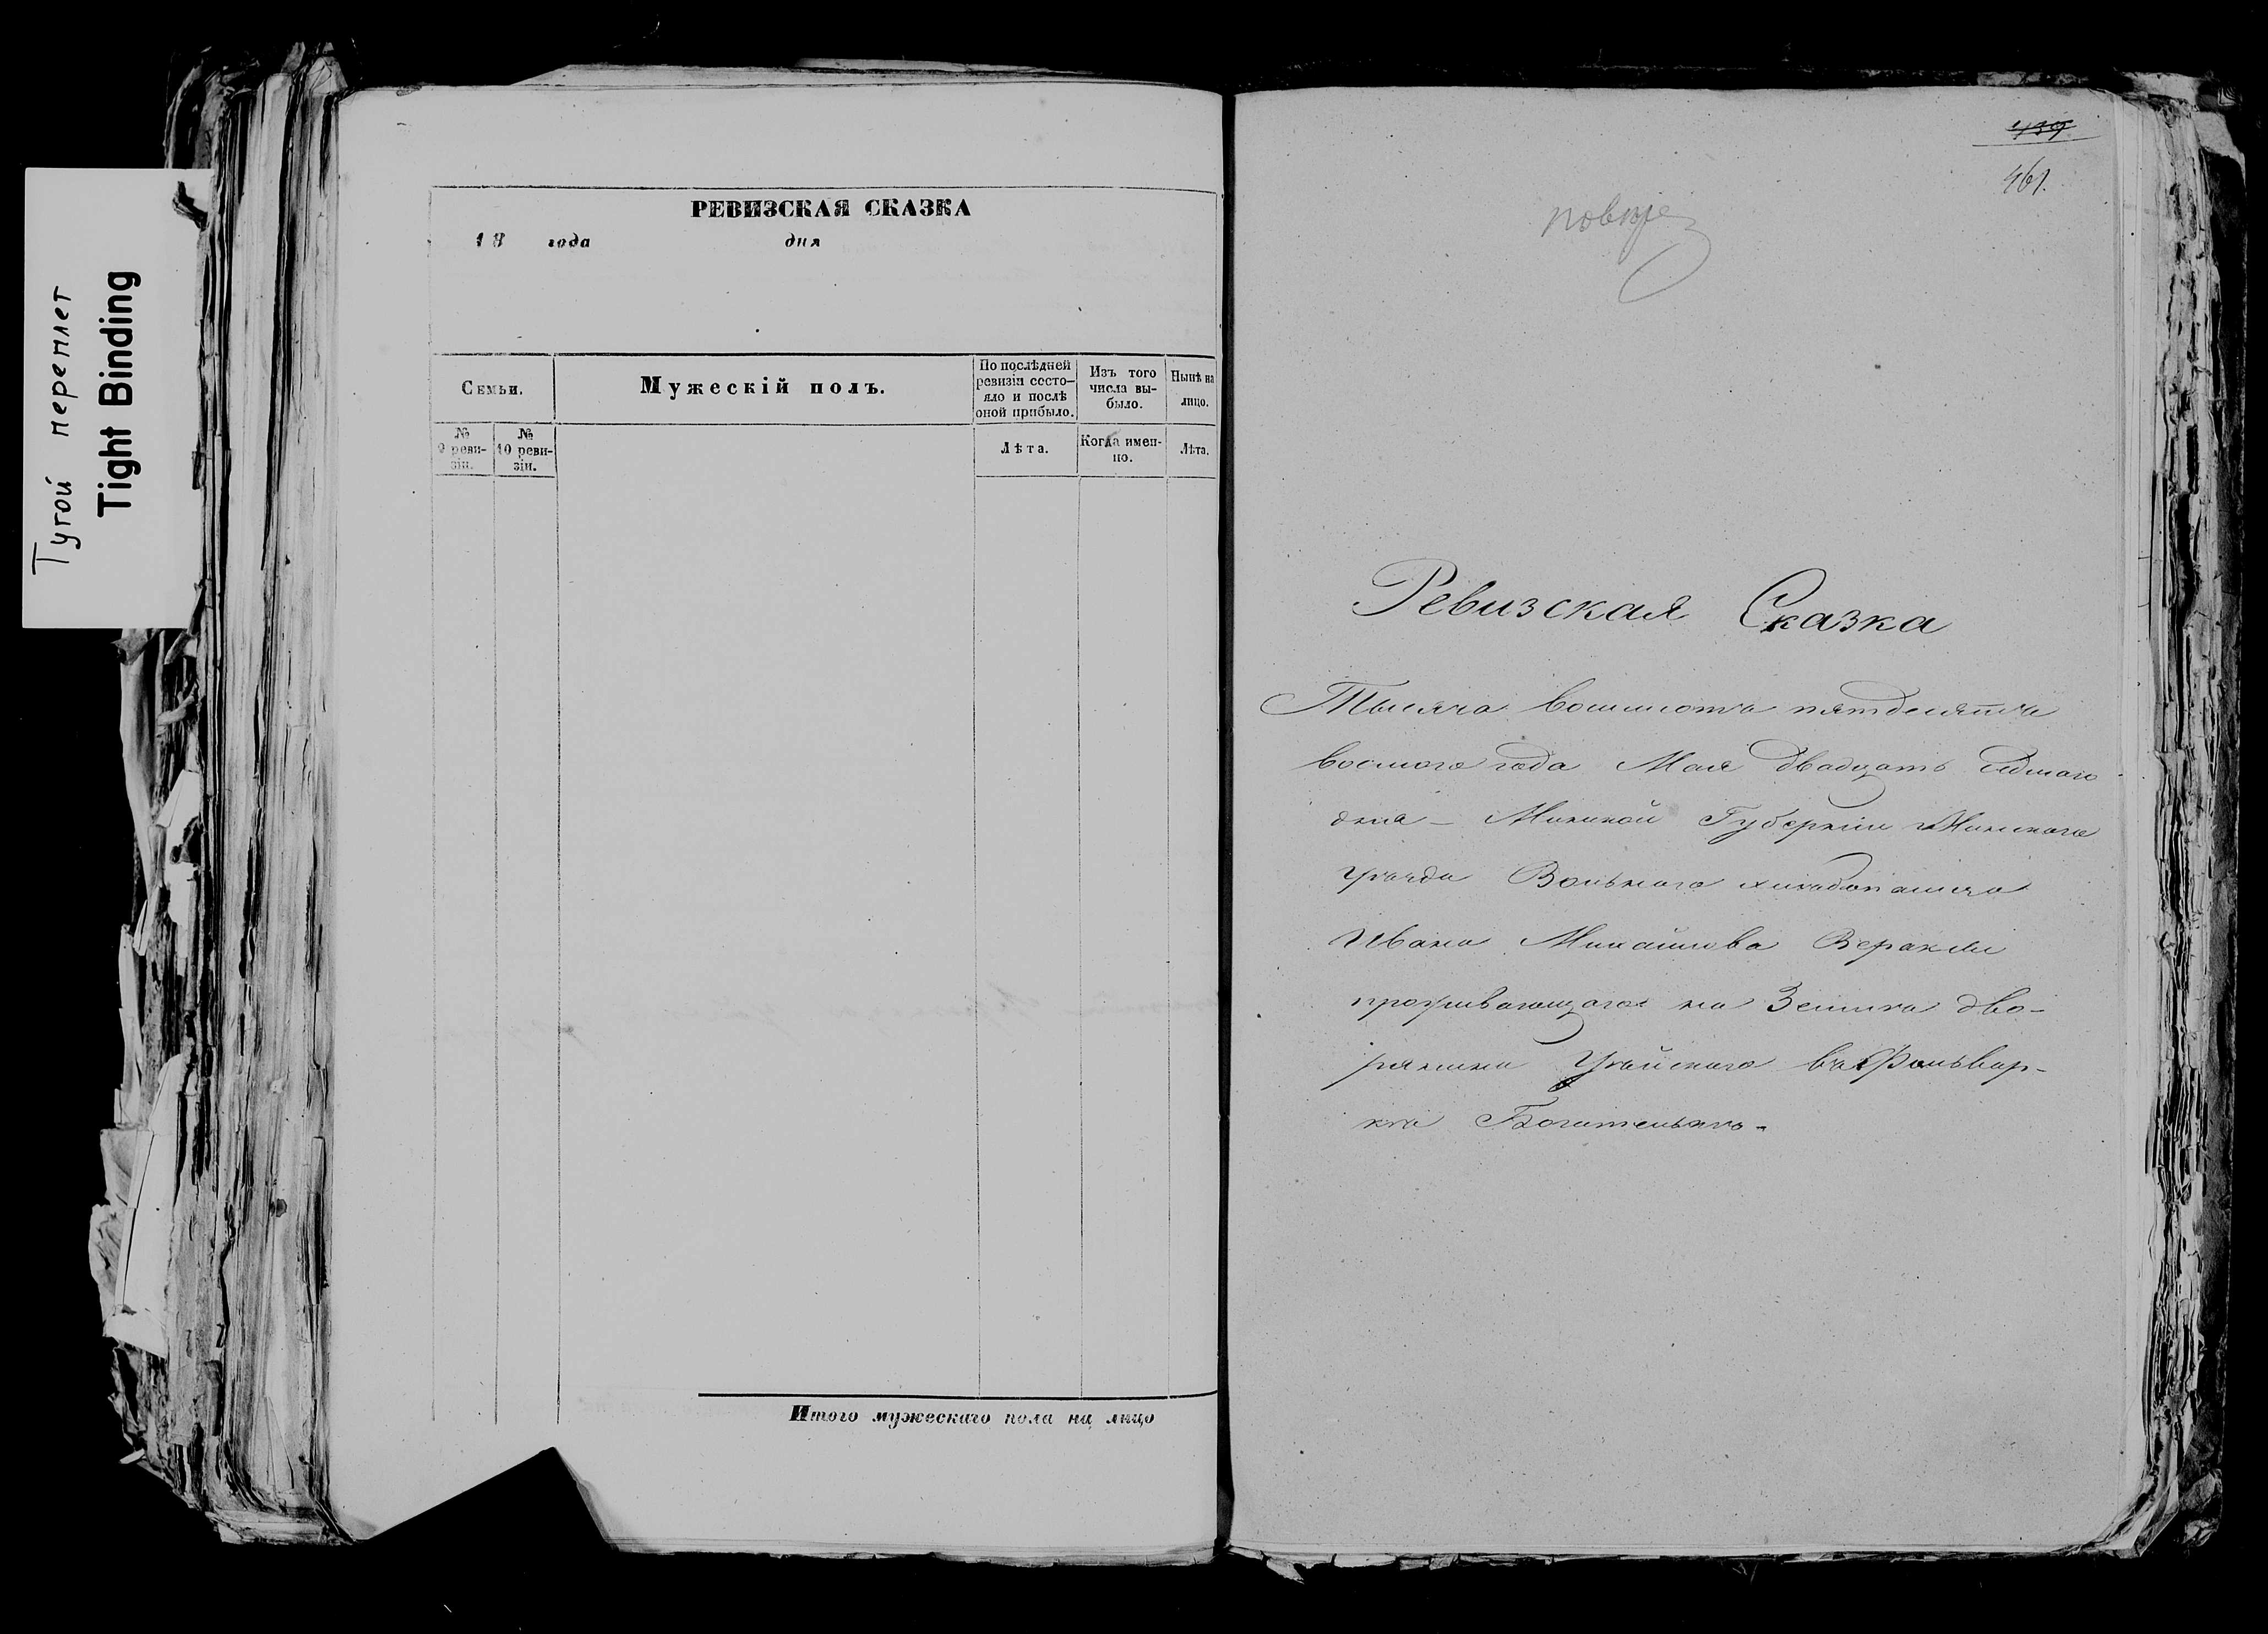 Тугой переплет
Tight Binding
РЕВИЗСКАЯ СКАЗКА
18 года дня
Семьи.
Мужескій полъ.
По послѣдней
ревизіи состо-
яло и послѣ
оной прибыло.
Изъ того
числа вы-
было.
Нынѣ на
лицо.
№
9 реви-
зіи.
№
10 реви-
зіи.
Лѣта.
Когда имен-
но.
Лѣта.
Итого мужескаго пола на лицо
439
461.
Ревизская Сказка
Тысяча восемсотъ пятдесятъ
восмого года Мая двадцать седмаго
дня – Минской Губерніи Минскаго
уѣзда Вольнаго хлѣбопашца
Ивана Михайлова
проживающаго на Землѣ дво-
рянина въ Фольвар-
кѣ